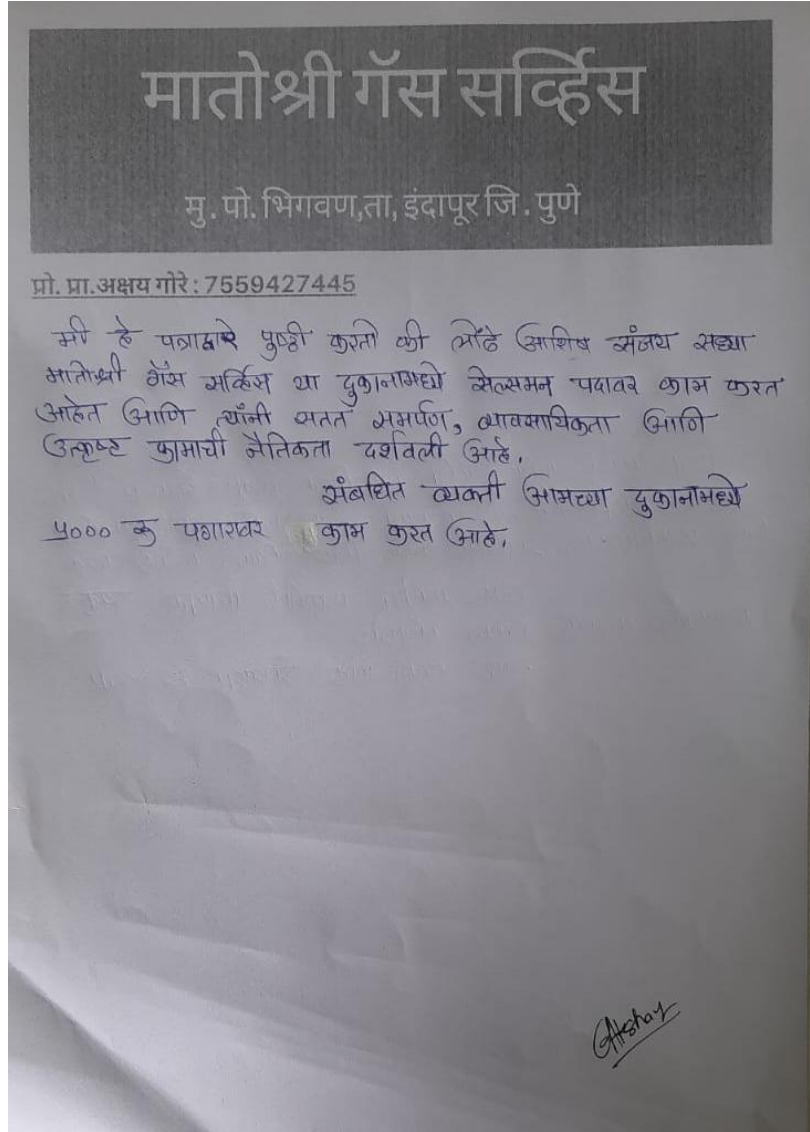 मातोश्री गॅस सर्व्हिस
मु.पो.भिगवण,ता,इंदापूर जि.पुणे
प्रो. प्रा.अक्षय गोरे : 7559427445
मी हे पत्राद्वारे पुष्ठी करतो की लोंढे आशिष संजय सध्या
मातोश्री गॅस सर्व्हिस या दुकानामध्ये सेल्समन पदावर काम करत
आहेत आणि त्यांनी सतत समर्पण, व्यावसायिकता आणि
उत्कृष्ट कामाची नैतिकता दर्शवली आहे.
संबधित व्यक्ती आमच्या दुकानामध्ये
५००० रु पगारावर काम करत आहे.
Akshay